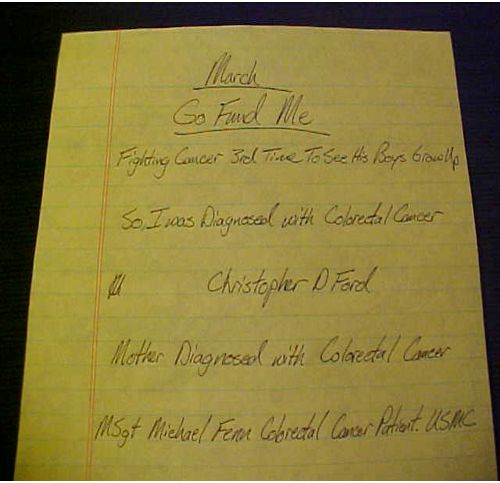 March
Go Fund Me
Fighting Cancer 3rd Time To See His Boys Grow Up
So, I was Diagnosed with Colorectal Cancer
Christopher D Ford
Mother Diagnosed with Colorectal Cancer
MSgt Michael Fenn Colorectal Cancer Patient. USMC